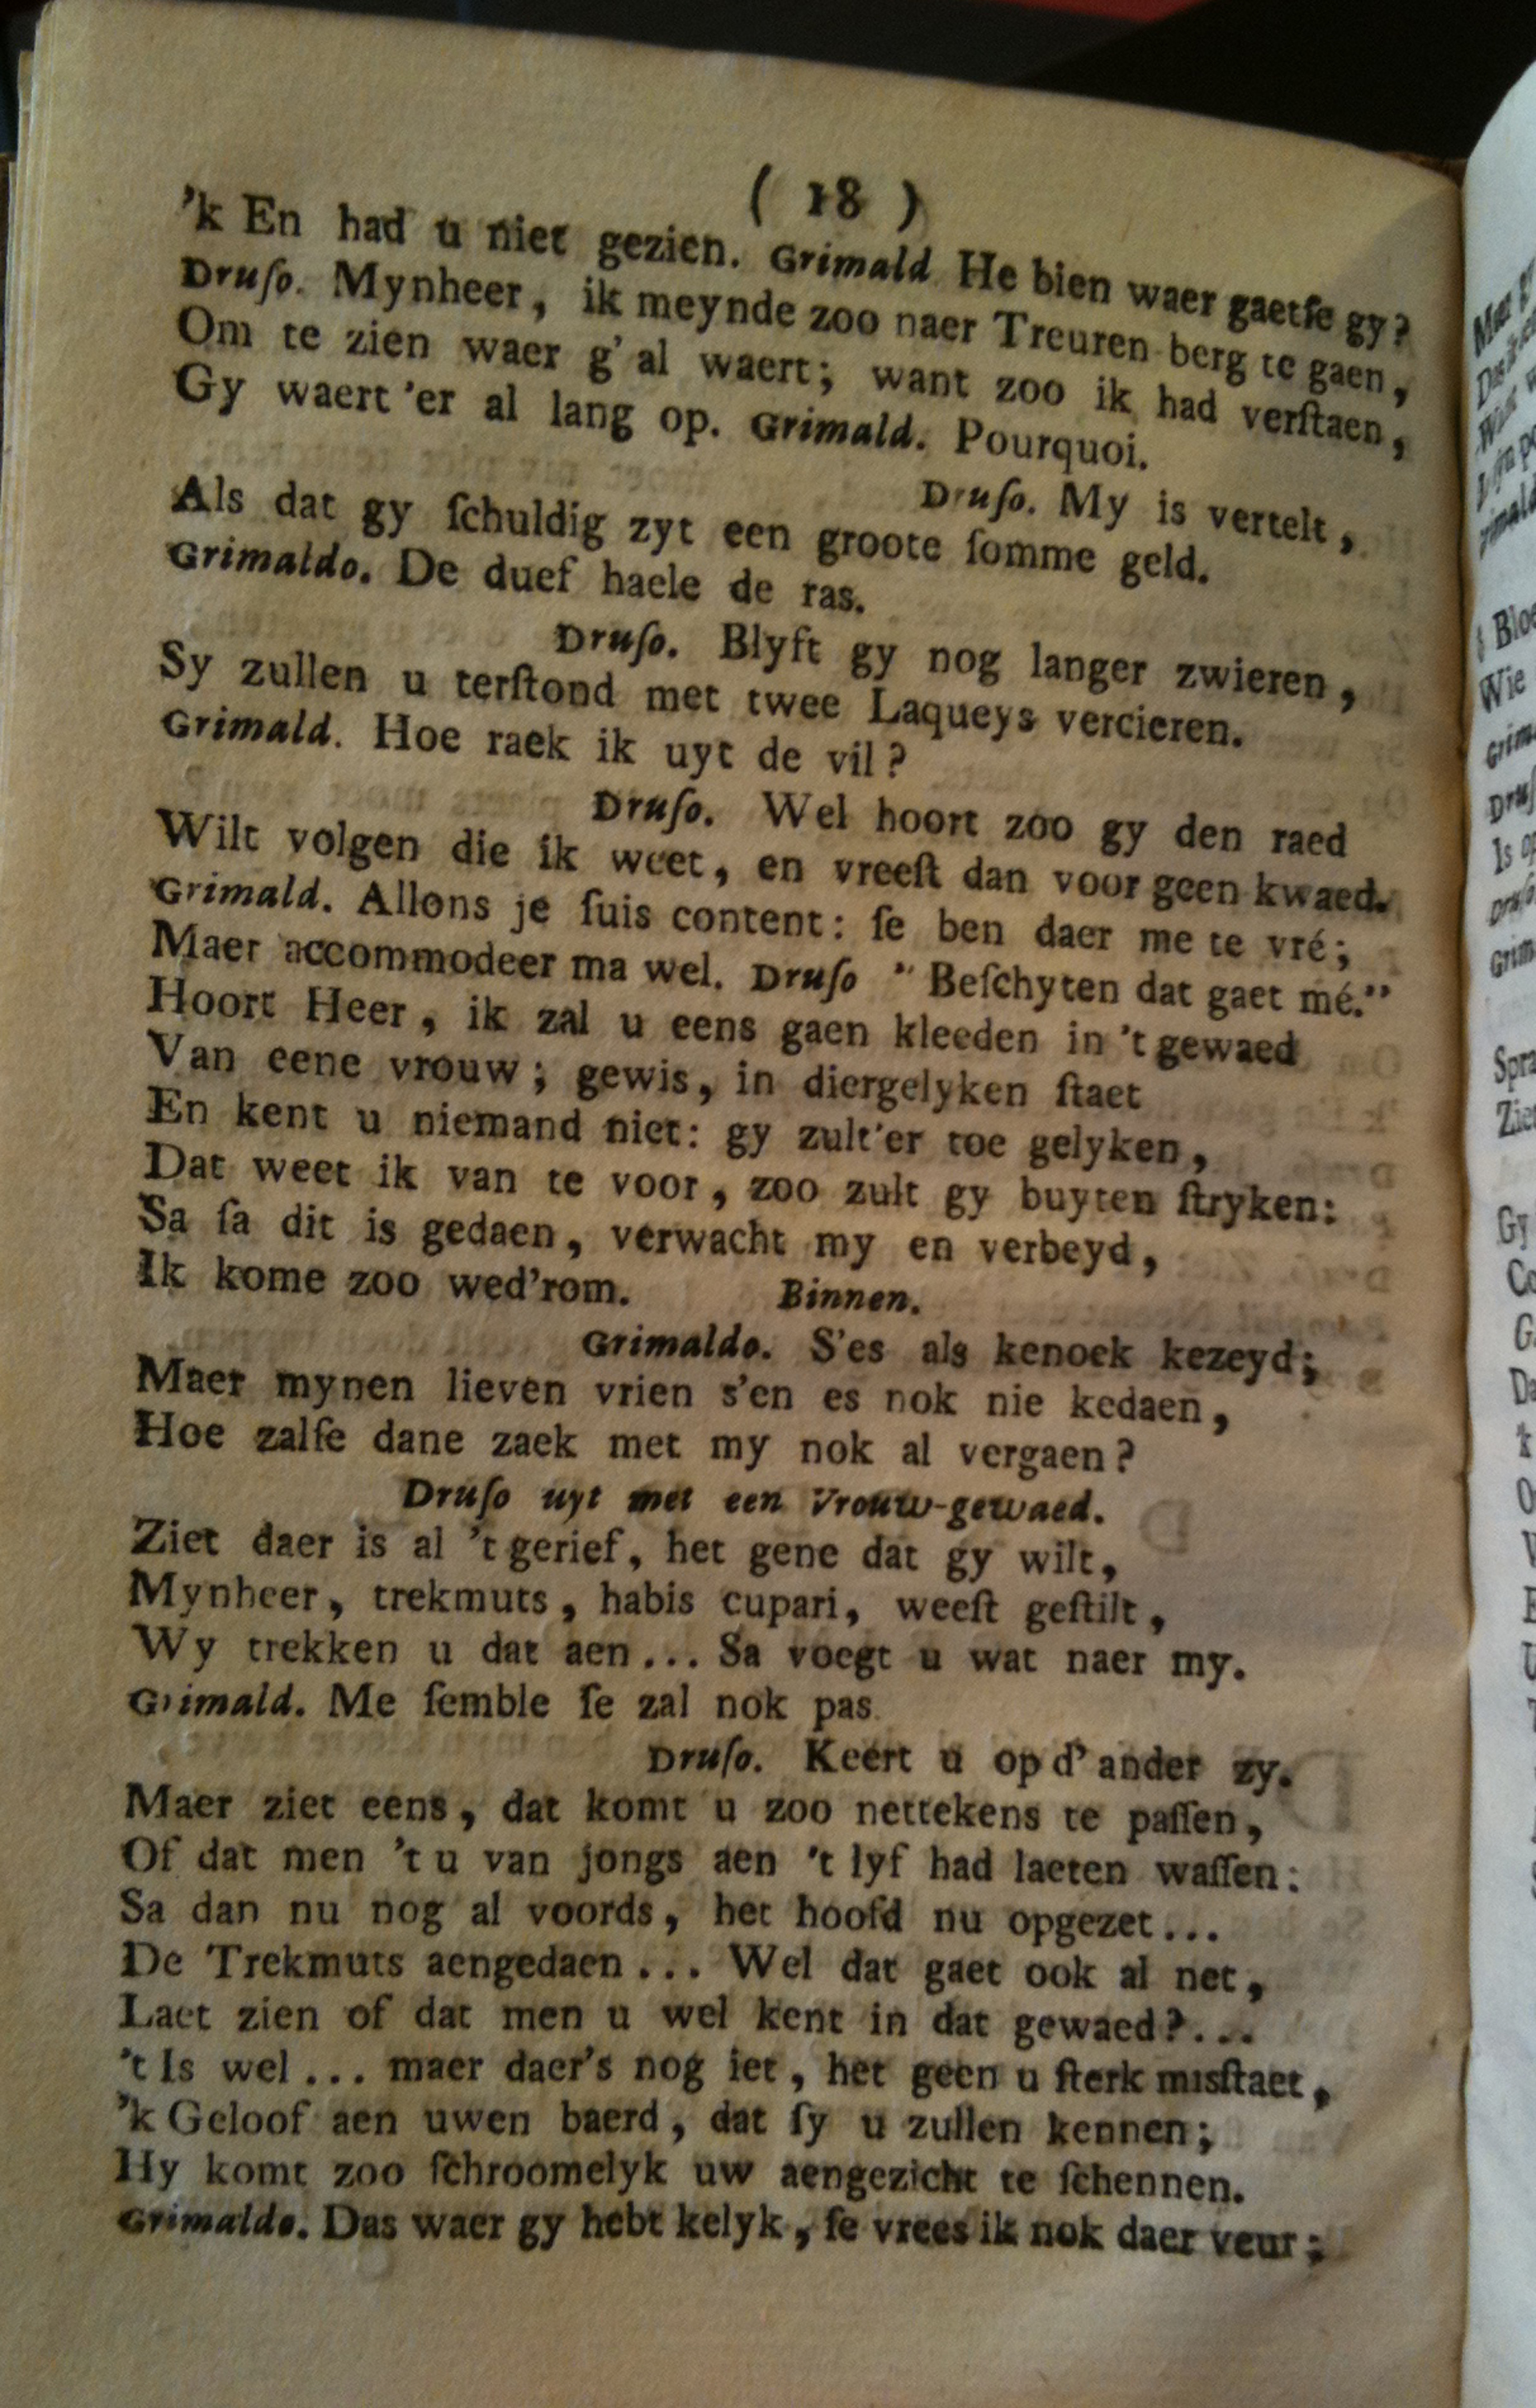 ( 18 )
'k En had u niet gezien. Grimald He bien waer gaetſe gy?
Druſo. Mynheer, ik meynde zoo naer Treuren-berg te gaen,
Om te zien waer g' al waert; want zoo ik had verſtaen,
Gy waert 'er al lang op. Grimald. Pourquoi.
Druſo. My is vertelt,
Als dat gy ſchuldig zyt een groote ſomme geld.
Grimaldo. De duef haele de ras.
Druſo. Blyft gy nog langer zwieren,
Sy zullen u terſtond met twee Laqueys vercieren.
Grimald. Hoe raek ik uyt de vil?
Druſo. Wel hoort zoo gy den raed
Wilt volgen die ik weet, en vreeſt dan voor geen kwaed.
Grimald. Allons je ſuis content: ſe ben daer me te vré;
Maer accommodeer ma wel. Druſo " Beſchyten dat gaet mé."
Hoort Heer, ik zal u eens gaen kleeden in 't gewaed
Van eene vrouw; gewis, in diergelyken ſtaet
En kent u niemand niet: gy zult'er toe gelyken,
Dat weet ik van te voor, zoo zult gy buyten ſtryken:
Sa ſa dit is gedaen, verwacht my en verbeyd,
Ik kome zoo wed'rom. Binnen.
Grimaldo. S'es als kenoek kezeyd;
Maer mynen lieven vrien s'en es nok nie kedaen,
Hoe zalſe dane zaek met my nok al vergaen?
Druſo uyt met een Vrouw-gewaed.
Ziet daer is al 't gerief, het gene dat gy wilt,
Mynheer, trekmuts, habis cupari, weeſt geſtilt,
Wy trekken u dat aen... Sa voegt u wat naer my.
Grimald. Me ſemble ſe zal nok pas
Druſo. Keert u op d' ander zy.
Maer ziet eens, dat komt u zoo nettekens te paſſen,
Of dat men 't u van jongs aen 't lyf had laeten waſſen:
Sa dan nu nog al voords, het hoofd nu opgezet...
De Trekmuts aengedaen... Wel dat gaet ook al net,
Laet zien of dat men u wel kent in dat gewaed?...
't Is wel... maer daer's nog iet, het geen u ſterk misſtaet,
'k Geloof aen uwen baerd, dat ſy u zullen kennen;
Hy komt zoo ſchroomelyk uw aengezicht te ſchennen.
Grimaldo. Das waer gy hebt kelyk, ſe vrees ik nok daer veur;